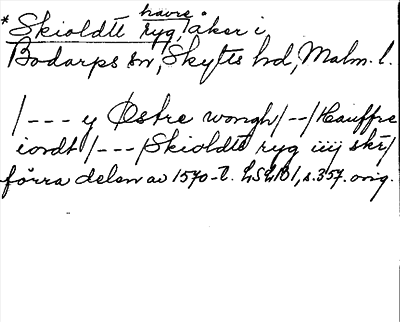 havre
* Skioldtt ryg, åker i
Bodarps sn, Skytts hd, Malm. l.
/--- y Østre wongh/--/Hauffre
iordt/---/Skioldtt ryg iiij skr/
förra delen av 1570-t. LSLB1, s.357. orig.